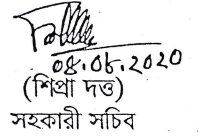 08.08.2020
(শিপ্রা দত্ত)
সহকারী সচিব